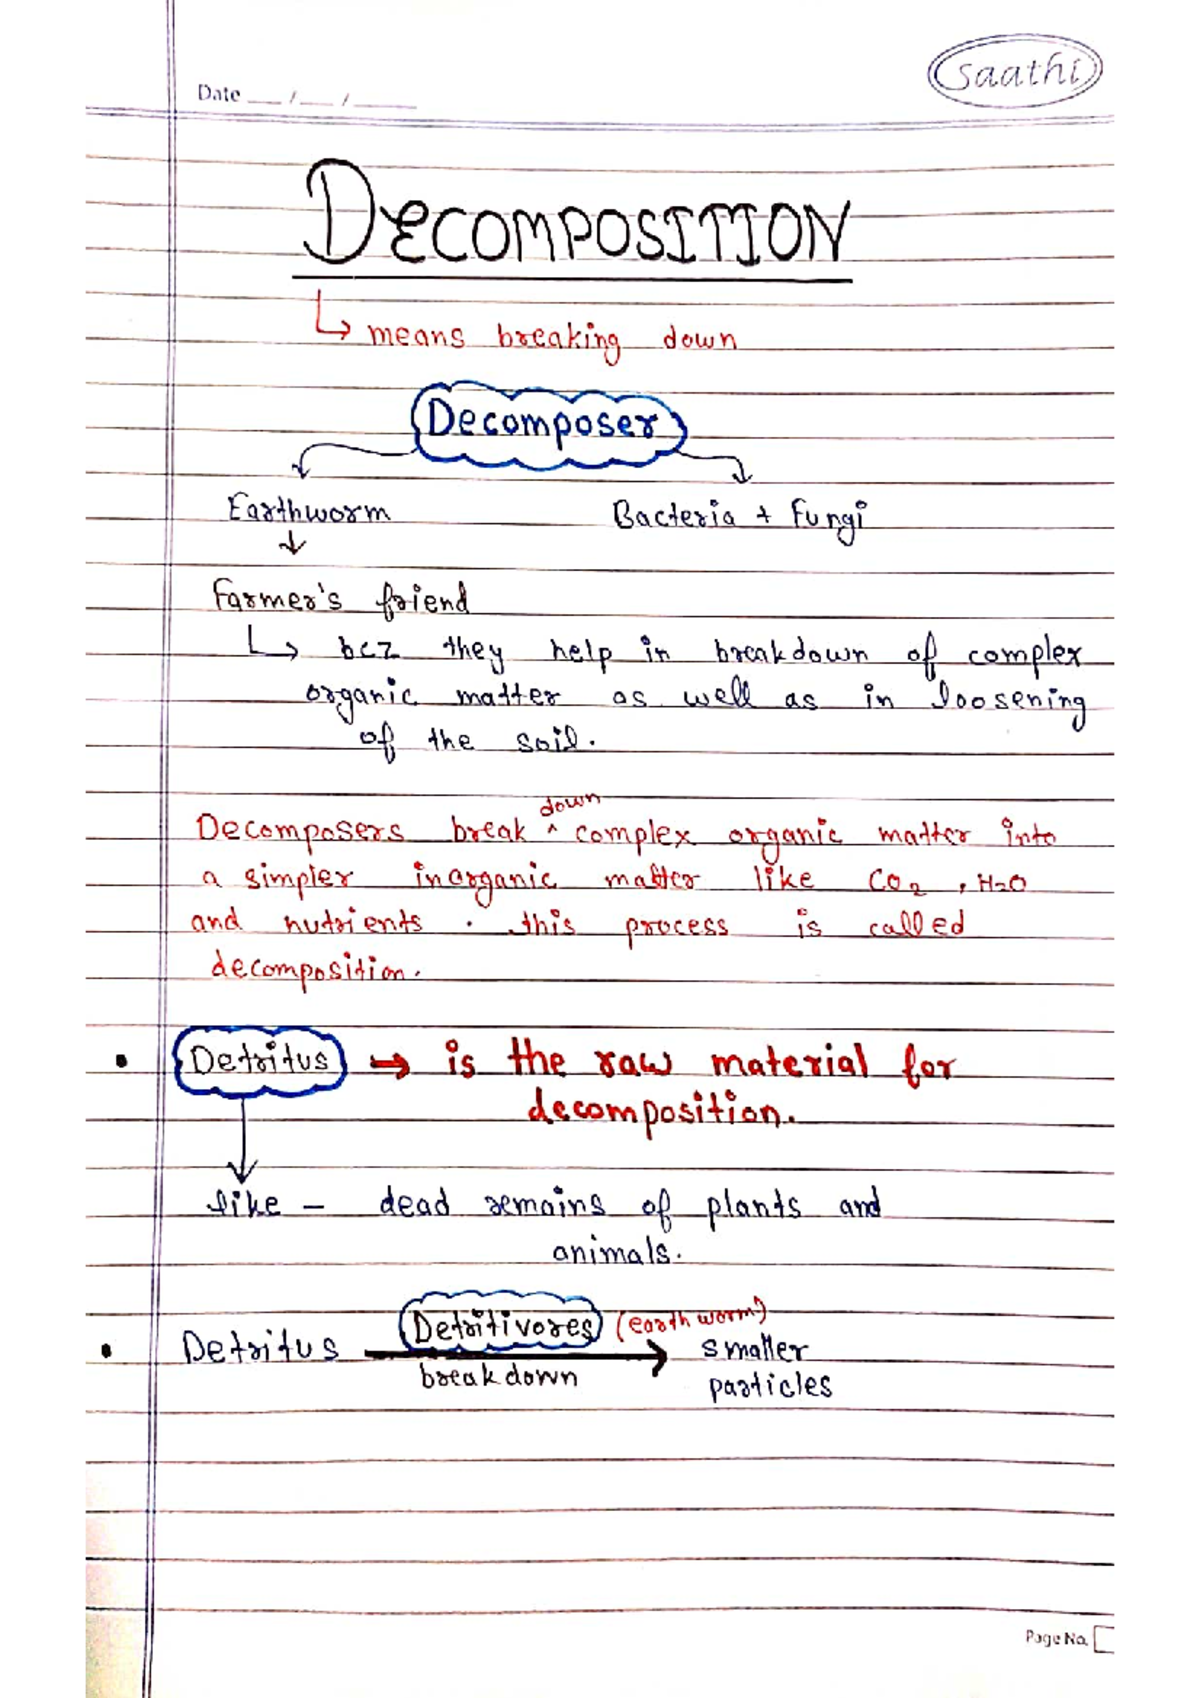 saathi
Date __/__/____
DECOMPOSITION
↳ means breaking down
Decomposer
Earthworm Bacteria + Fungi
↓
Farmer's friend
↳ bcz they help in breakdown of complex
organic matter as well as in loosening
of the soil.
down
Decomposers break ^ complex organic matter into
a simpler inorganic matter like CO2, H2O
and nutrients. this process is called
decomposition.
• Detritus → is the raw material for
decomposition.
like - dead remains of plants and
animals.
Detritivores (earthworm)
• Detritus → smaller
breakdown particles
Page No.